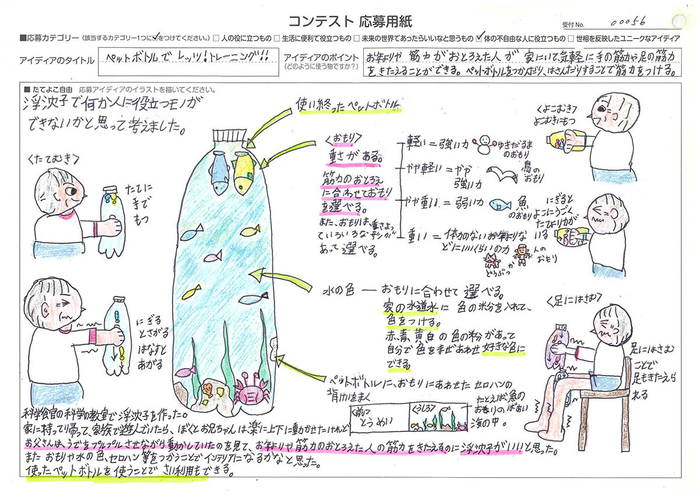 コンテスト 応募用紙
受付No. 00056
■応募カテゴリー(該当するカテゴリー1つに✓をつけてください。) □人の役に立つもの □生活に便利で役立つもの □未来の世界であったらいいなと思うもの ☑体の不自由な人に役立つもの □世相を反映したユニークなアイディア
アイディアのタイトル
ペットボトルでレッツ!トレーニング!!
アイディアのポイント
(どのように使う物ですか?)
お年よりや筋力がおとろえた人が家にいて気軽に手の筋力や足の筋力
をきたえることができる。ペットボトルをつかんだり、はさんだりすることで筋力をつける。
■たてよこ自由 応募アイディアのイラストを描いてください。
浮沈子で何か人に役立つモノが
できないかと思って考えました。
使い終ったペットボトル
<たてむき>
たてに
手で
もつ
にぎる
とさがる
はなすと
あがる
<おもり>
重さがある。
筋力のおとろえ
に合わせておもり
を選べる。
また、おもりは、重さによっ
ていろいろな
あって選べる。
軽い=強い力
ゆきだるま
のおもり
やや軽い=やや
強い力
鳥の
おもり
やや重い=弱い力
魚
のおもり
重い=体力のないお年よりな
どにいいくらいの力
人の
おもり
どうぶつ
<よこむき>
よこむきにもつ
にぎると
よこにうごく
たてよりカが
いる
水の色―おもりに合わせて選べる。
家の水道水に色の粉を入れて、
色をつける。
赤、青、黄、白の色の粉があって
自分で色をまぜあわせ好きな色に
できる
ペットボトルに、おもりにあわせたセロハンの
背けいをまく
<前>
とうめい
<うしろ>
たとえば魚の
おもりのばあい
海の中。
<足にはさむ>
足にはさむ
ことで
足もきたえら
れる
科学館の科学教室で浮沈子を作った。
家に持って帰って、家族で遊んでいたら、ぼくとお兄ちゃんは楽に上下に動かせたけれど
お父さんは、うでをプルプルさせながら動かしていたのを見て、お年よりや筋力のおとろえた人の筋力をきたえるのに浮沈子がいいと思った。
またおもりや水の色、セロハン等をつかうことでインテリアになるかなと思った。
使ったペットボトルを使うことでさい利用もできる。